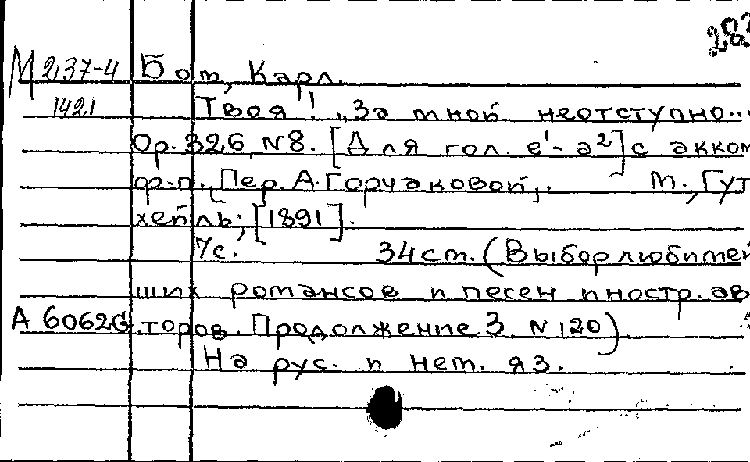 282
М 2,37-4 Бом, Карл.
1421 Твоя! „За мной неотступно...
Op. 326, N8. [Для гол. e¹-a²] с акком
ф-п., [Пер. А. Горчаковой,. М., Гут
хейль, [1891].
7с. 34 см. (Выбор любимей
ших романсов и песен иностр. ав
А 6062G торов. Продолжение 3 N 120)
На рус. и нем. яз.